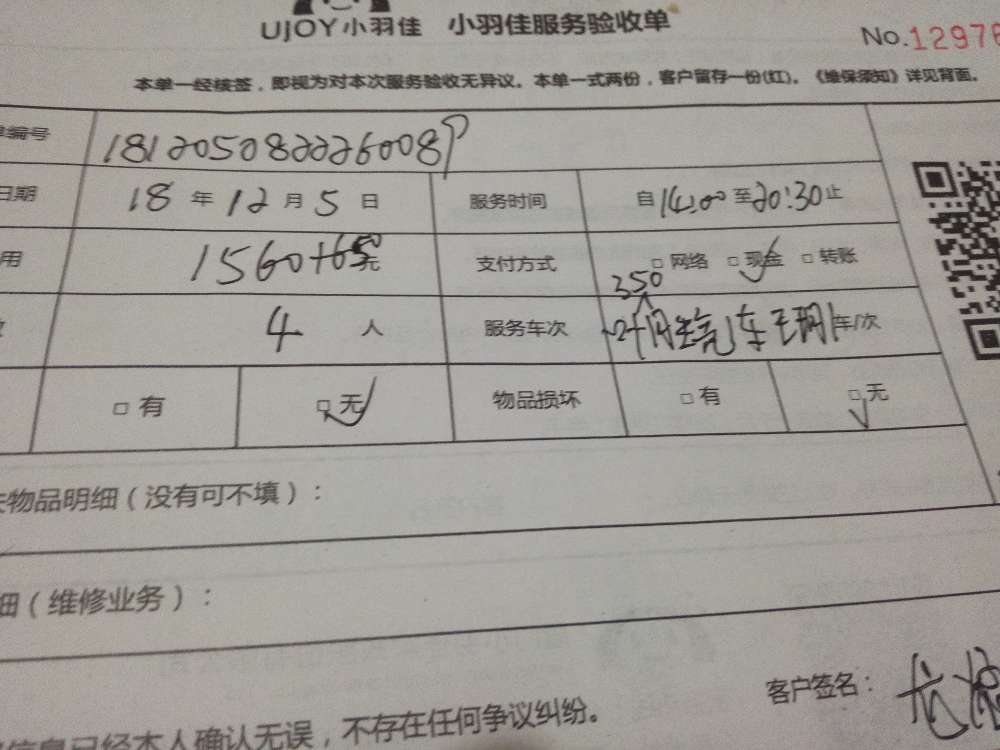 UJOY小羽佳 小羽佳服务验收单
No.12976
本单一经核签，即视为对本次服务验收无异议。本单一式两份，客户留存一份(红)。《维保须知》详见背面。
单编号 181205082226008
日期 18 年 12 月 5 日 服务时间 自 14:00 至 20:30 止
用 1560+650 元 支付方式 □ 网络 □ 现金 □ 转账
350
4 人 服务车次 车/次
□ 有 □ 无 物品损坏 □ 有 □ 无
物品明细（没有可不填）：
细（维修业务）：
客户签名：
信息已经本人确认无误，不存在任何争议纠纷。